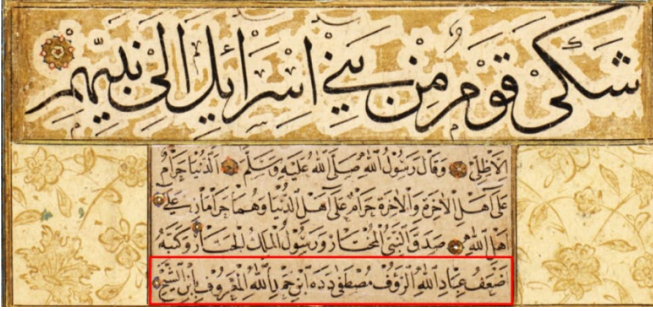 شَكَى قَوْمٌ مِنْ بَنِي اِسْرَائِلَ اِلَى نَبِيِّهِمْ
الاظليّ وَقَالَ رَسُولُ اللهِ صَلَّى اللهُ عَلَيْهِ وَسَلَّمَ الدُّنْيَا حَرَامٌ
عَلَى اَهْلِ الاٰخِرَةِ وَالاٰخِرَةُ حَرَامٌ عَلَى اَهْلِ الدُّنْيَا وَهُمَا حَرَامَانِ عَلَى
اَهْلِ اللهِ صَدَقَ النَّبِيُّ المُخْتَارُ وَرَسُولُ المَلِكِ الجَبَّارِ وَكَتَبَهُ
ضَعَفُ عِبَادِ اللهِ الرَّؤُفِ مُصْطَفَى دَدَه ابْنِ حَمْدِ اللهِ المَعْرُوفِ بِابْنِ الشَّيْخِ